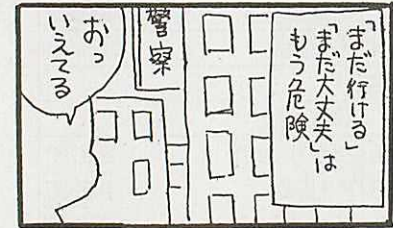 「まだ行ける」
「まだ大丈夫」は
もう危険
警察
おっ
いえてる